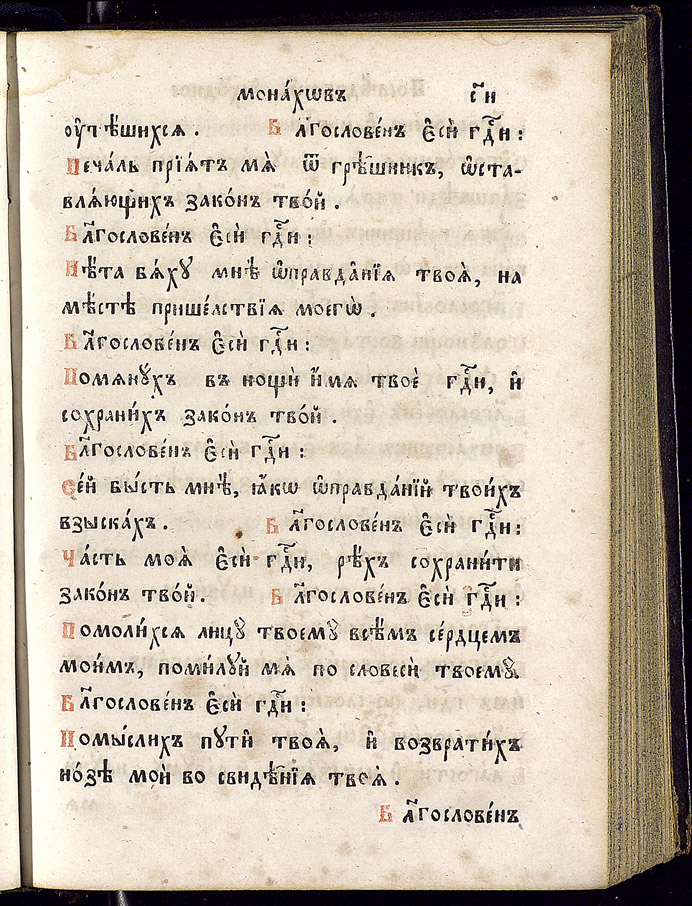 мона́хѡвъ с҃и
ᲂу҆тѣ́шихсѧ . Бл҃гослове́нъ є҆сѝ гдⷭ҇и :
Печа́ль прїѧ́тъ мѧ̀ ѿ грѣ̑шникъ, ѡ҆ста-
влѧ́ющихъ зако́нъ тво́й .
Бл҃гослове́нъ є҆сѝ гдⷭ҇и :
Пѣ́та бѧ́хꙋ мнѣ̀ ѡ҆правда̑нїѧ твоѧ̀, на
мѣ́стѣ прише́лствїѧ моегѡ̀ .
Бл҃гослове́нъ є҆сѝ гдⷭ҇и :
Помѧнꙋ́хъ въ нощѝ и҆́мѧ твоѐ гдⷭ҇и, и҆
сохрани́хъ зако́нъ тво́й .
Бл҃гослове́нъ є҆сѝ гдⷭ҇и :
Се́й бы́сть мнѣ̀, ꙗ҆́кѡ ѡ҆правда́нїй твои́хъ
взыска́хъ . Бл҃гослове́нъ є҆сѝ гдⷭ҇и :
Ча́сть моѧ̀ є҆сѝ гдⷭ҇и, рѣ́хъ сохрани́ти
зако́нъ тво́й . Бл҃гослове́нъ є҆сѝ гдⷭ҇и :
Помоли́хсѧ лицꙋ̀ твоемꙋ̀ всѣ́мъ се́рдцемъ
мои́мъ, поми́лꙋй мѧ̀ по словесѝ твоемꙋ̀
Бл҃гослове́нъ є҆сѝ гдⷭ҇и :
Помы́слихъ пꙋти̑ твоѧ̀, и҆ возврати́хъ
но́зѣ мои̑ во свидѣ̑нїѧ твоѧ̀ .
Бл҃гослове́нъ